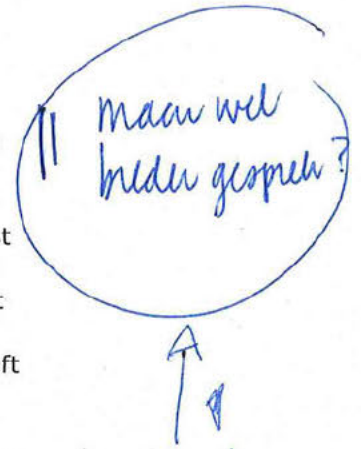 maar wel
breder gesprek?
st
t
ft